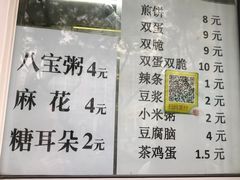 八宝粥 4元
麻花 4元
糖耳朵 2元
煎饼 8元
双蛋 9元
双脆 9元
双蛋双脆 10元
辣条 1元
豆浆 2元
小米粥 2元
豆腐脑 4元
茶鸡蛋 1.5元